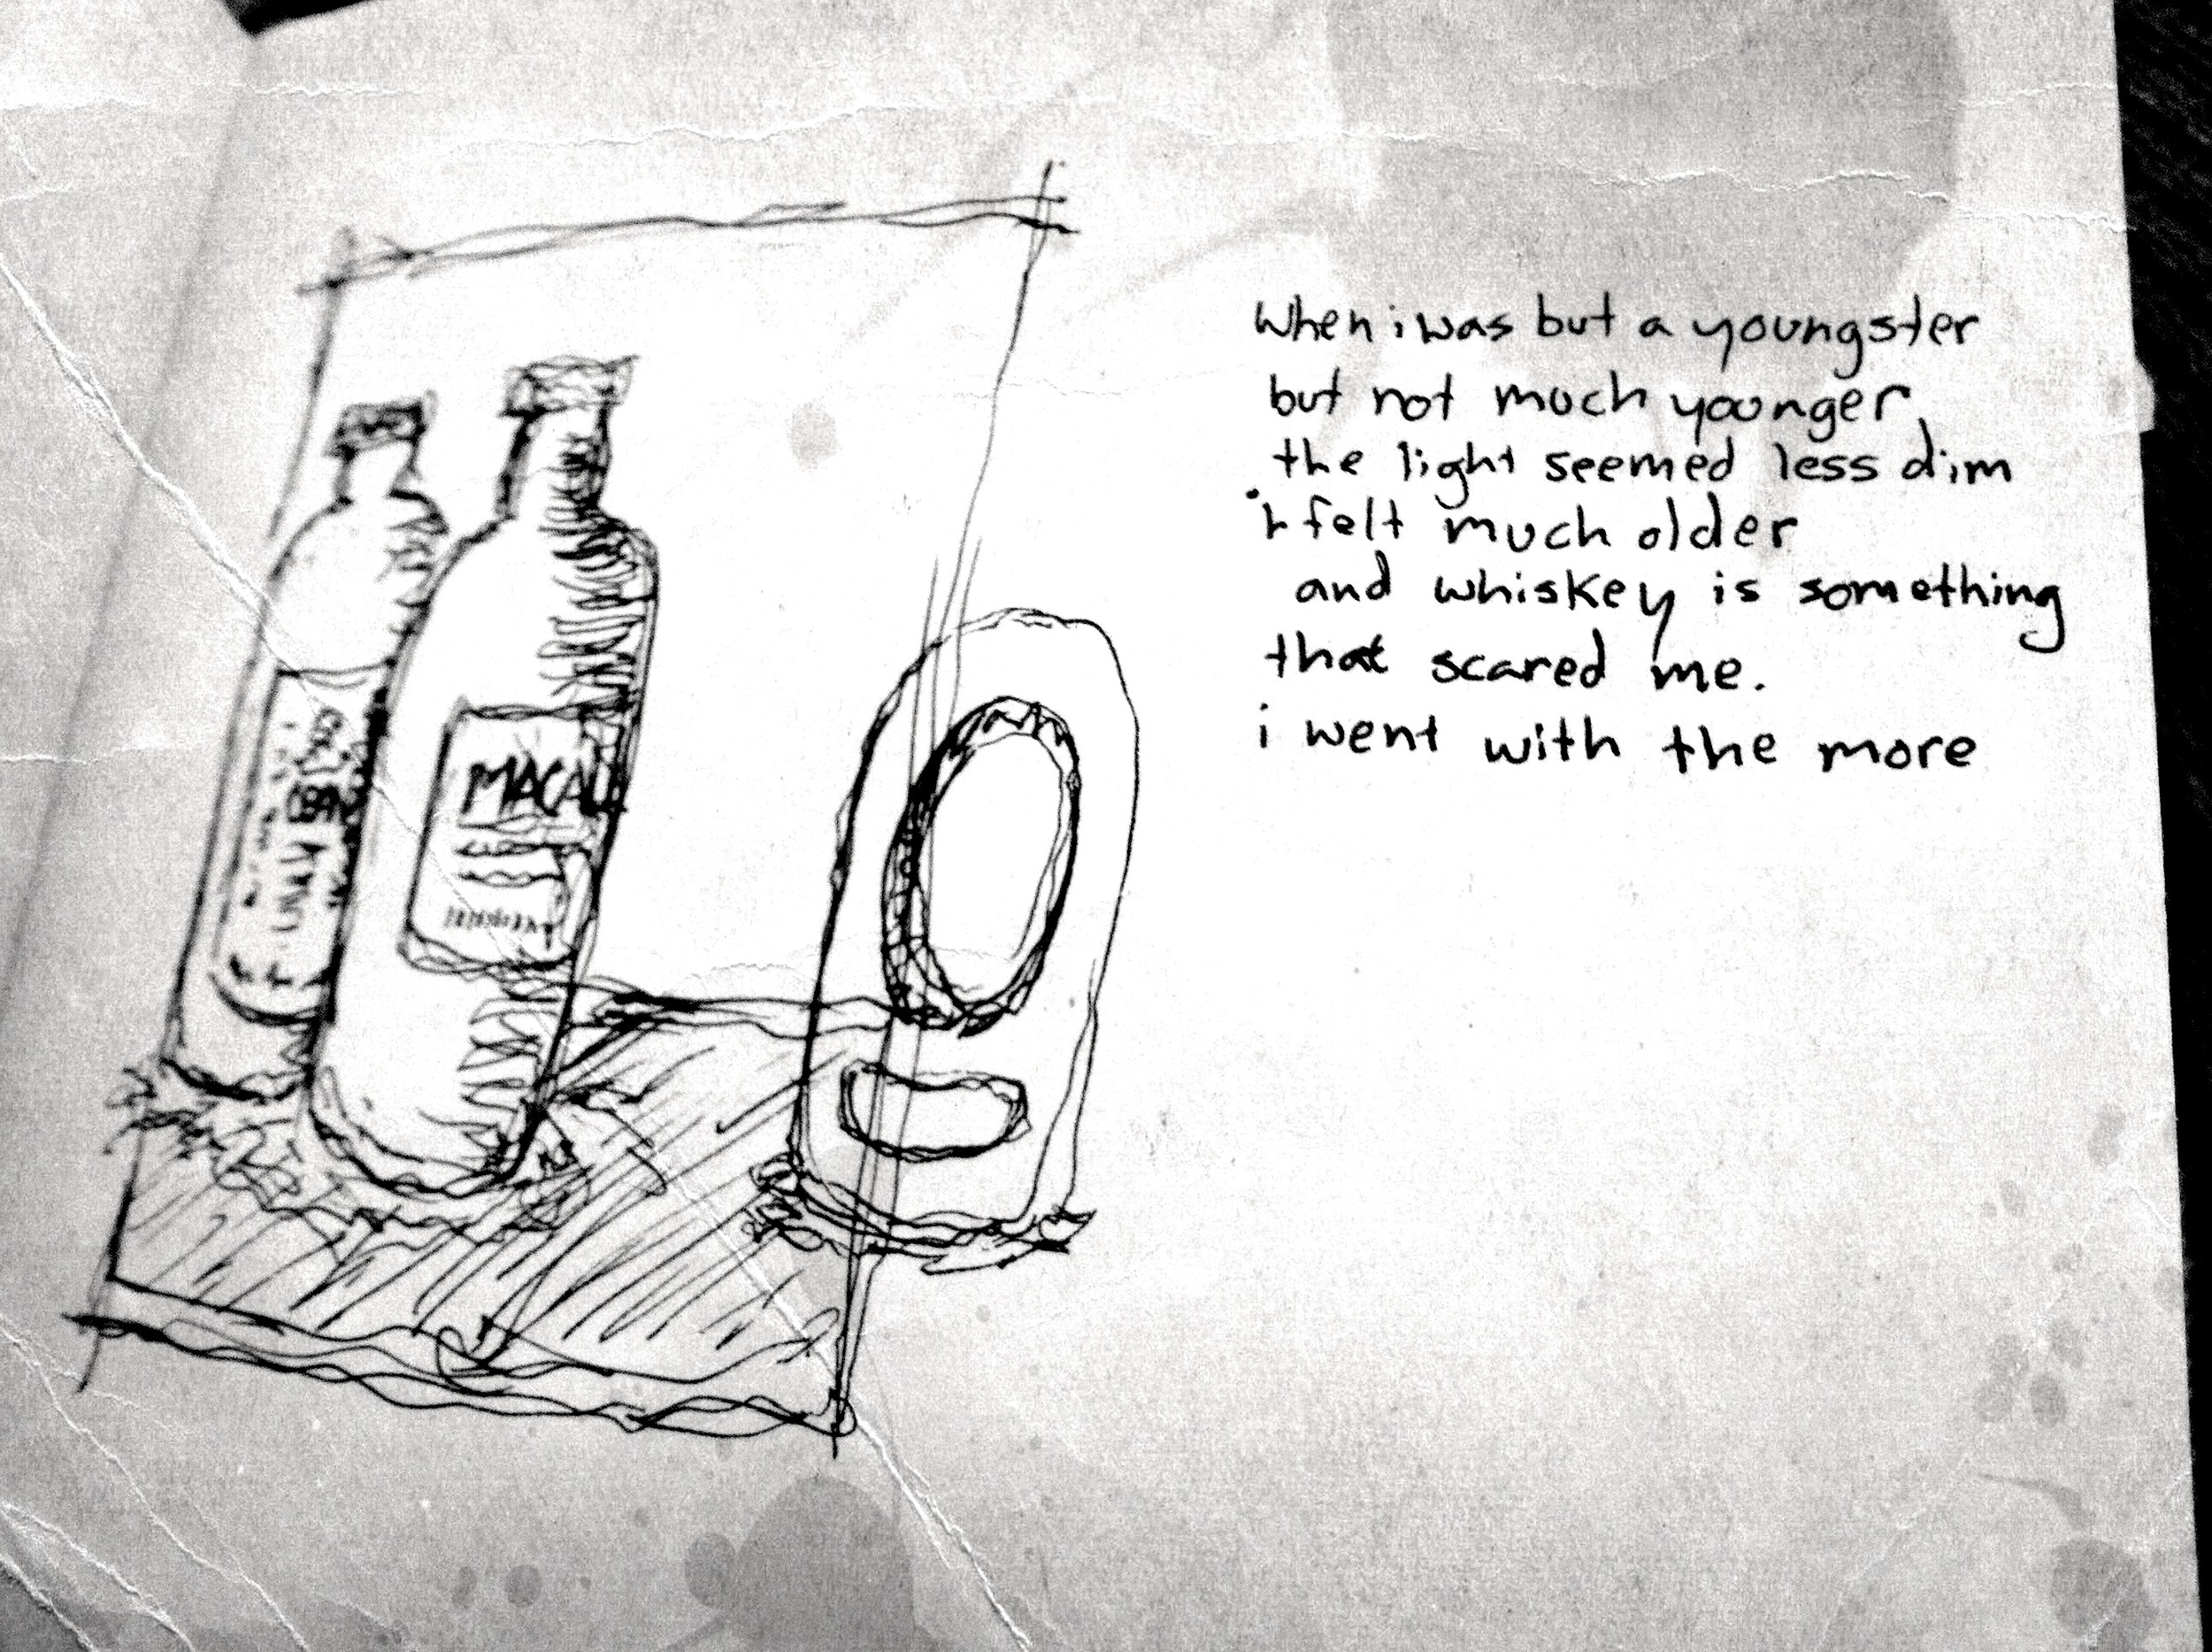 MACAL
when i was but a youngster
but not much younger,
the light seemed less dim
i felt much older
and whiskey is something
that scared me.
i went with the more